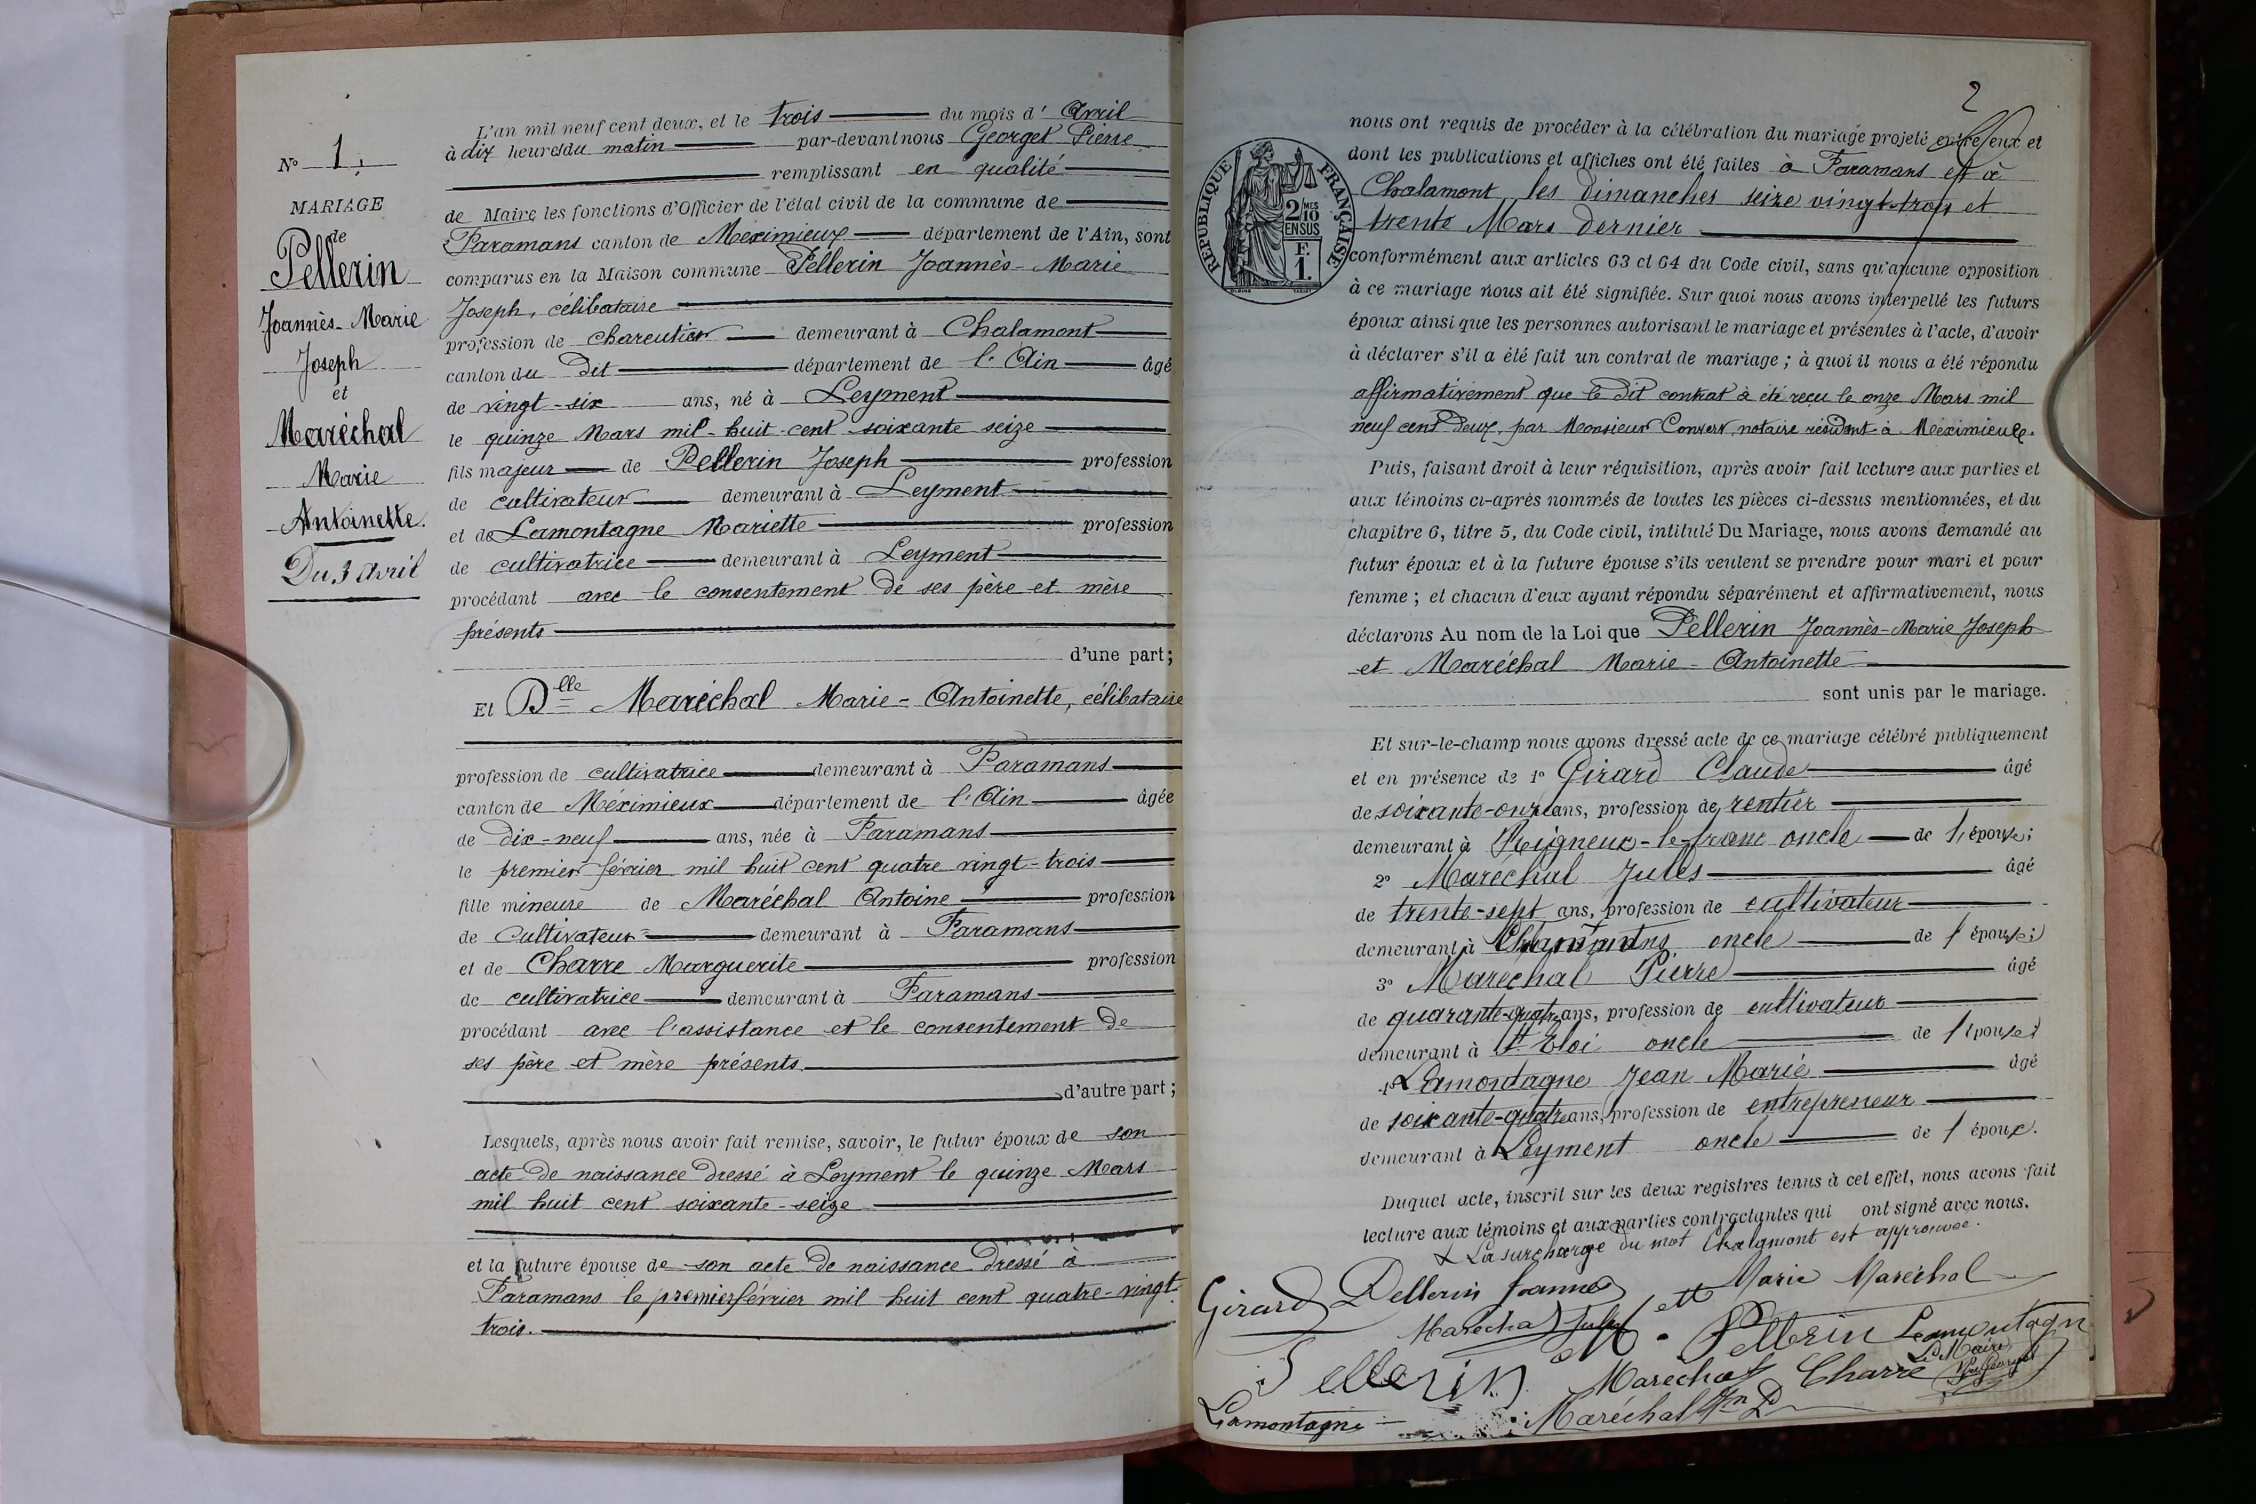 N° 1.
MARIAGE
de
Pellerin
Joannès-Marie
Joseph
et
Maréchal
Marie
Antoinette.
Du 3 Avril
L'an mil neuf cent deux, et le trois du mois d'Avril
à dix heures du matin par-devant nous Georget Pierre
remplissant en qualité
de Maire les fonctions d'Officier de l'état civil de la commune de
Faramans canton de Meximieux département de l'Ain, sont
comparus en la Maison commune Pellerin Joannès-Marie
Joseph, célibataire
profession de charcutier demeurant à Chalamont
canton du Dit département de l'Ain âgé
de vingt-six ans, né à Leyment
le quinze Mars mil-huit-cent soixante seize
fils majeur de Pellerin Joseph profession
de cultivateur demeurant à Leyment
et de Lamontagne Mariette profession
de cultivatrice demeurant à Leyment
procédant avec le consentement de ses père et mère
présents
d'une part;
Et Dlle Maréchal Marie-Antoinette, célibataire
profession de cultivatrice demeurant à Faramans
canton de Méximieux département de l'Ain âgée
de dix-neuf ans, née à Faramans
le premier février mil huit cent quatre vingt-trois
fille mineure de Maréchal Antoine profession
de cultivateur demeurant à Faramans
et de Charre Marguerite profession
de cultivatrice demeurant à Faramans
procédant avec l'assistance et le consentement de
ses père et mère présents.
d'autre part;
Lesquels, après nous avoir fait remise, savoir, le futur époux de son
acte de naissance dressé à Leyment le quinze Mars
mil huit cent soixante-seize
et la future épouse de son acte de naissance dressé à
Faramans le premier février mil huit cent quatre-vingt
trois.
2
RÉPUBLIQUE FRANÇAISE
2/10 MES
EN SUS
F.
1.
nous ont requis de procéder à la célébration du mariage projeté entre eux et
dont les publications et affiches ont été faites à Faramans et à
Chalamont les dimanches seize vingt-trois et
trente Mars dernier
conformément aux articles 63 et 64 du Code civil, sans qu'aucune opposition
à ce mariage nous ait été signifiée. Sur quoi nous avons interpellé les futurs
époux ainsi que les personnes autorisant le mariage et présentes à l'acte, d'avoir
à déclarer s'il a été fait un contrat de mariage; à quoi il nous a été répondu
affirmativement que le dit contrat à été reçu le onze Mars mil
neuf cent deux, par Monsieur Convert, notaire résidant à Méximieux.
Puis, faisant droit à leur réquisition, après avoir fait lecture aux parties et
aux témoins ci-après nommés de toutes les pièces ci-dessus mentionnées, et du
chapitre 6, titre 5, du Code civil, intitulé Du Mariage, nous avons demandé au
futur époux et à la future épouse s'ils veulent se prendre pour mari et pour
femme; et chacun d'eux ayant répondu séparément et affirmativement, nous
déclarons Au nom de la Loi que Pellerin Joannès-Marie Joseph
et Maréchal Marie-Antoinette
sont unis par le mariage.
Et sur-le-champ nous avons dressé acte de ce mariage célébré publiquement
et en présence de 1° Girard Claude âgé
de soixante-onze ans, profession de rentier
demeurant à Rigneux-le-franc oncle de l'épouse;
2° Maréchal Jules âgé
de trente-sept ans, profession de cultivateur
demeurant à oncle de l'épouse;
3° Maréchal Pierre âgé
de quarante-quatre ans, profession de cultivateur
demeurant à St Eloi oncle de l'épouse;
4° Lamontagne Jean Marie âgé
de soixante-quatre ans, profession de entrepreneur
demeurant à Leyment oncle de l'époux.
Duquel acte, inscrit sur les deux registres tenus à cet effet, nous avons fait
lecture aux témoins et aux parties contractantes qui ont signé avec nous.
La surcharge du mot Chalamont est approuvée.
Girard Pellerin Joannes et Marie Maréchal
Maréchal Jules M. Pellerin Lamontagne
Pellerin Maréchal Charre Le Maire
Lamontagne Maréchal